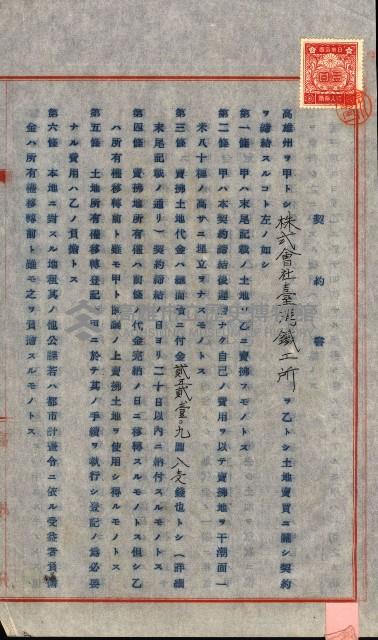 契約書
高雄州ヲ甲トシ株式會社臺灣鐵工所ヲ乙トシ土地賣買ニ關シ契約
ヲ締結スルコト左ノ如シ
第一條 甲ハ末尾記載ノ土地ヲ乙ニ賣拂フモノトス
第二條 甲ハ本契約締結後遲滯ナク自己ノ費用ヲ以テ賣拂地ヲ干潮面一
米八十糎ノ高サニ埋立ヲナスモノトス
第三條 賣拂土地代金ハ總面實ニ付金 圓 錢也トシ(詳細
末尾記載ノ通リ)契約締結ノ日ヨリ二十日以內ニ納付スルモノトス
第四條 賣拂地所有權ハ前條ノ代金完納ノ日ニ移轉スルモノトス但シ乙
ハ所有權移轉前ト雖モ甲ト協議ノ上賣拂土地ヲ使用シ得ルモノトス
第五條 土地所有權移轉登記ハ甲ニ於テ其ノ手續ヲ執行シ登記ノ爲必要
ナル費用ハ乙ノ負擔トス
第六條 本地ニ對スル地租其ノ他公課若ハ都市計畫令ニ依ル受益者負擔
金ハ所有權移轉前ト雖モ之ヲ負擔スルモノトス